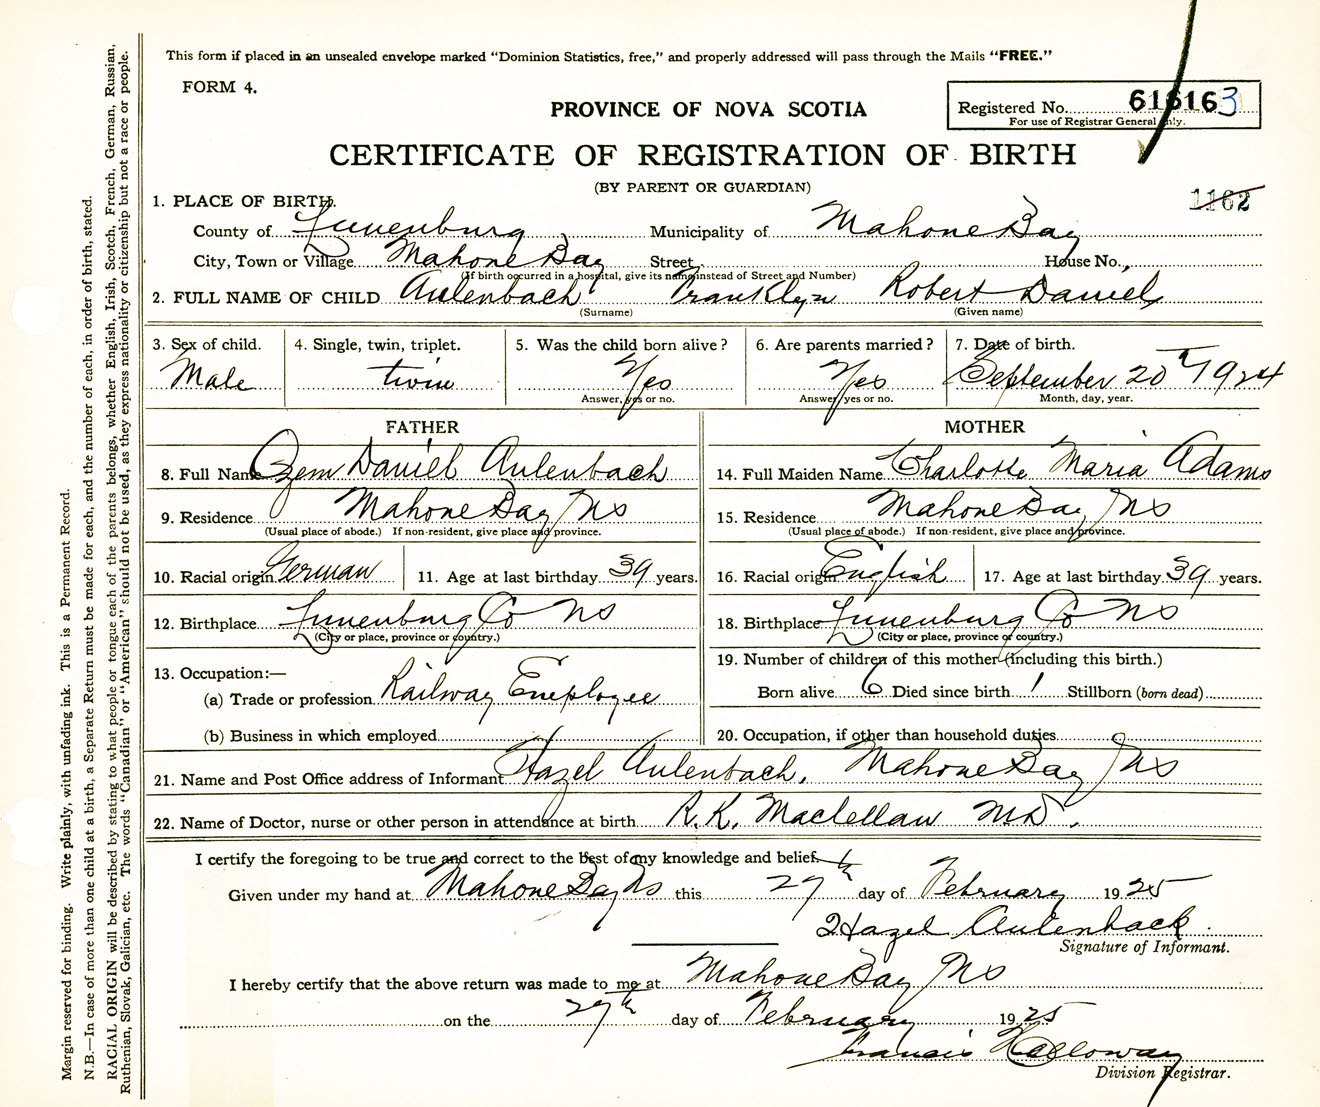 This form if placed in an unsealed envelope marked "Dominion Statistics, free," and properly addressed will pass through the Mails "FREE."
FORM 4.
PROVINCE OF NOVA SCOTIA
Registered No. 616163
For use of Registrar General only.
CERTIFICATE OF REGISTRATION OF BIRTH
(BY PARENT OR GUARDIAN)
1162
1. PLACE OF BIRTH.
County of Lunenburg Municipality of Mahone Bay
City, Town or Village Mahone Bay Street House No.
(If birth occurred in a hospital, give its name instead of Street and Number)
2. FULL NAME OF CHILD Aulenbach Franklyn Robert Daniel
(Surname) (Given name)
3. Sex of child. 4. Single, twin, triplet. 5. Was the child born alive? 6. Are parents married? 7. Date of birth.
Male twin Yes Yes September 20th 1924
Answer, yes or no. Answer yes or no. Month, day, year.
FATHER MOTHER
8. Full Name Ozem Daniel Aulenbach 14. Full Maiden Name Charlotte Maria Adams
9. Residence Mahone Bay NS 15. Residence Mahone Bay NS
(Usual place of abode.) If non-resident, give place and province. (Usual place of abode.) If non-resident, give place and province.
10. Racial origin German 11. Age at last birthday 39 years. 16. Racial origin English 17. Age at last birthday 39 years.
12. Birthplace Lunenburg Co NS 18. Birthplace Lunenburg Co NS
(City or place, province or country.) (City or place, province or country.)
13. Occupation:— 19. Number of children of this mother (including this birth.)
(a) Trade or profession Railway Employee Born alive 6 Died since birth 1 Stillborn (born dead)
(b) Business in which employed 20. Occupation, if other than household duties
21. Name and Post Office address of Informant Hazel Aulenbach, Mahone Bay NS
22. Name of Doctor, nurse or other person in attendance at birth R.K. Maclellan MD.
I certify the foregoing to be true and correct to the best of my knowledge and belief.
Given under my hand at Mahone Bay NS this 27th day of February 1925
Hazel Aulenback.
Signature of Informant.
I hereby certify that the above return was made to me at Mahone Bay NS
on the 27th day of February 1925
Francis Holloway
Division Registrar.
Margin reserved for binding. Write plainly, with unfading ink. This is a Permanent Record.
N.B.—In case of more than one child at a birth, a Separate Return must be made for each, and the number of each, in order of birth, stated.
RACIAL ORIGIN will be described by stating to what people or tongue each of the parents belongs, whether English, Irish, Scotch, French, German, Russian,
Ruthenian, Slovak, Galician, etc. The words "Canadian" or "American" should not be used, as they express nationality or citizenship but not a race or people.